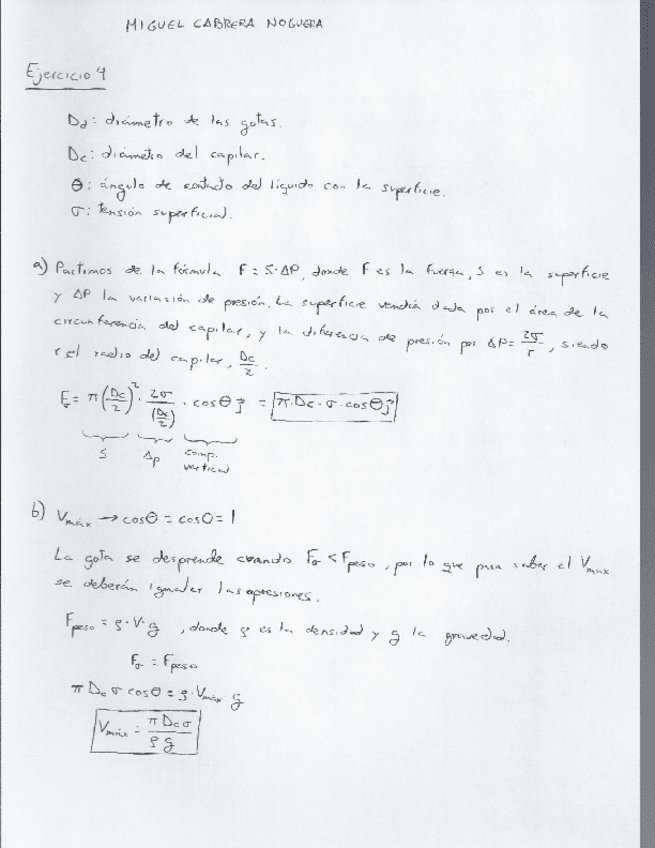 MIGUEL CABRERA NOGUERA
Ejercicio 4
Dd: diámetro de las gotas.
Dc: diámetro del capilar.
θ: ángulo de contacto del líquido con la superficie.
σ: tensión superficial.
a) Partimos de la fórmula F = S·ΔP, donde F es la fuerza, S es la superficie
y ΔP la variación de presión. La superficie vendría dada por el área de la
circunferencia del capilar, y la diferencia de presión por ΔP = 2σ/r, siendo
r el radio del capilar, Dc/2.
Fσ = π(Dc/2)² · 2σ/(Dc/2) · cosθ j = π·Dc·σ·cosθ j
S Δp comp. vertical
b) Vmáx → cosθ = cos0 = 1
La gota se desprende cuando Fσ < Fpeso, por lo que para saber el Vmax
se deberán igualar las expresiones.
Fpeso = ρ·V·g, donde ρ es la densidad y g la gravedad.
Fσ = Fpeso
π Dc σ cosθ = ρ·Vmáx g
Vmáx = π Dc σ / ρ g